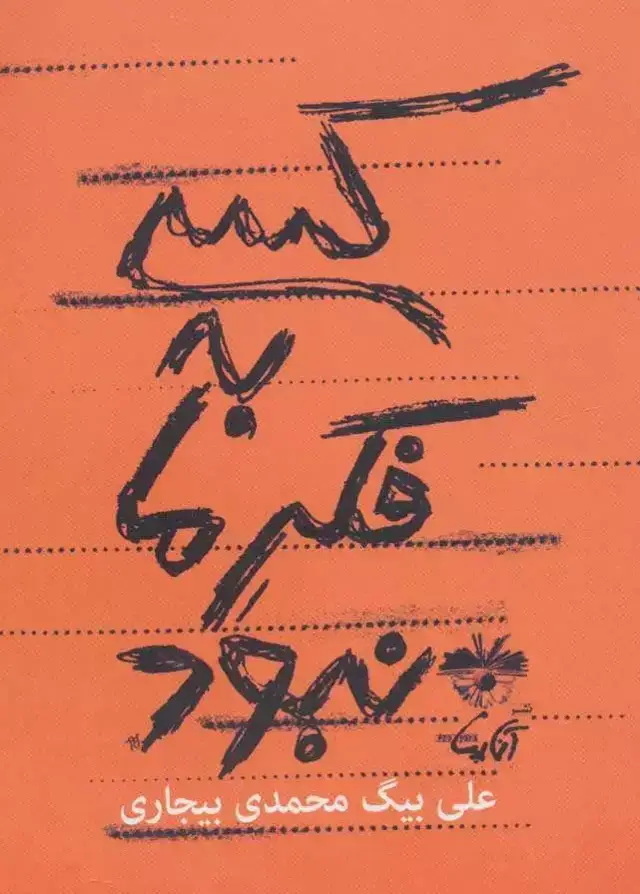 کسی
به
فکر ما
نبود
نشر
آناپنا
علی بیگ محمدی بیجاری